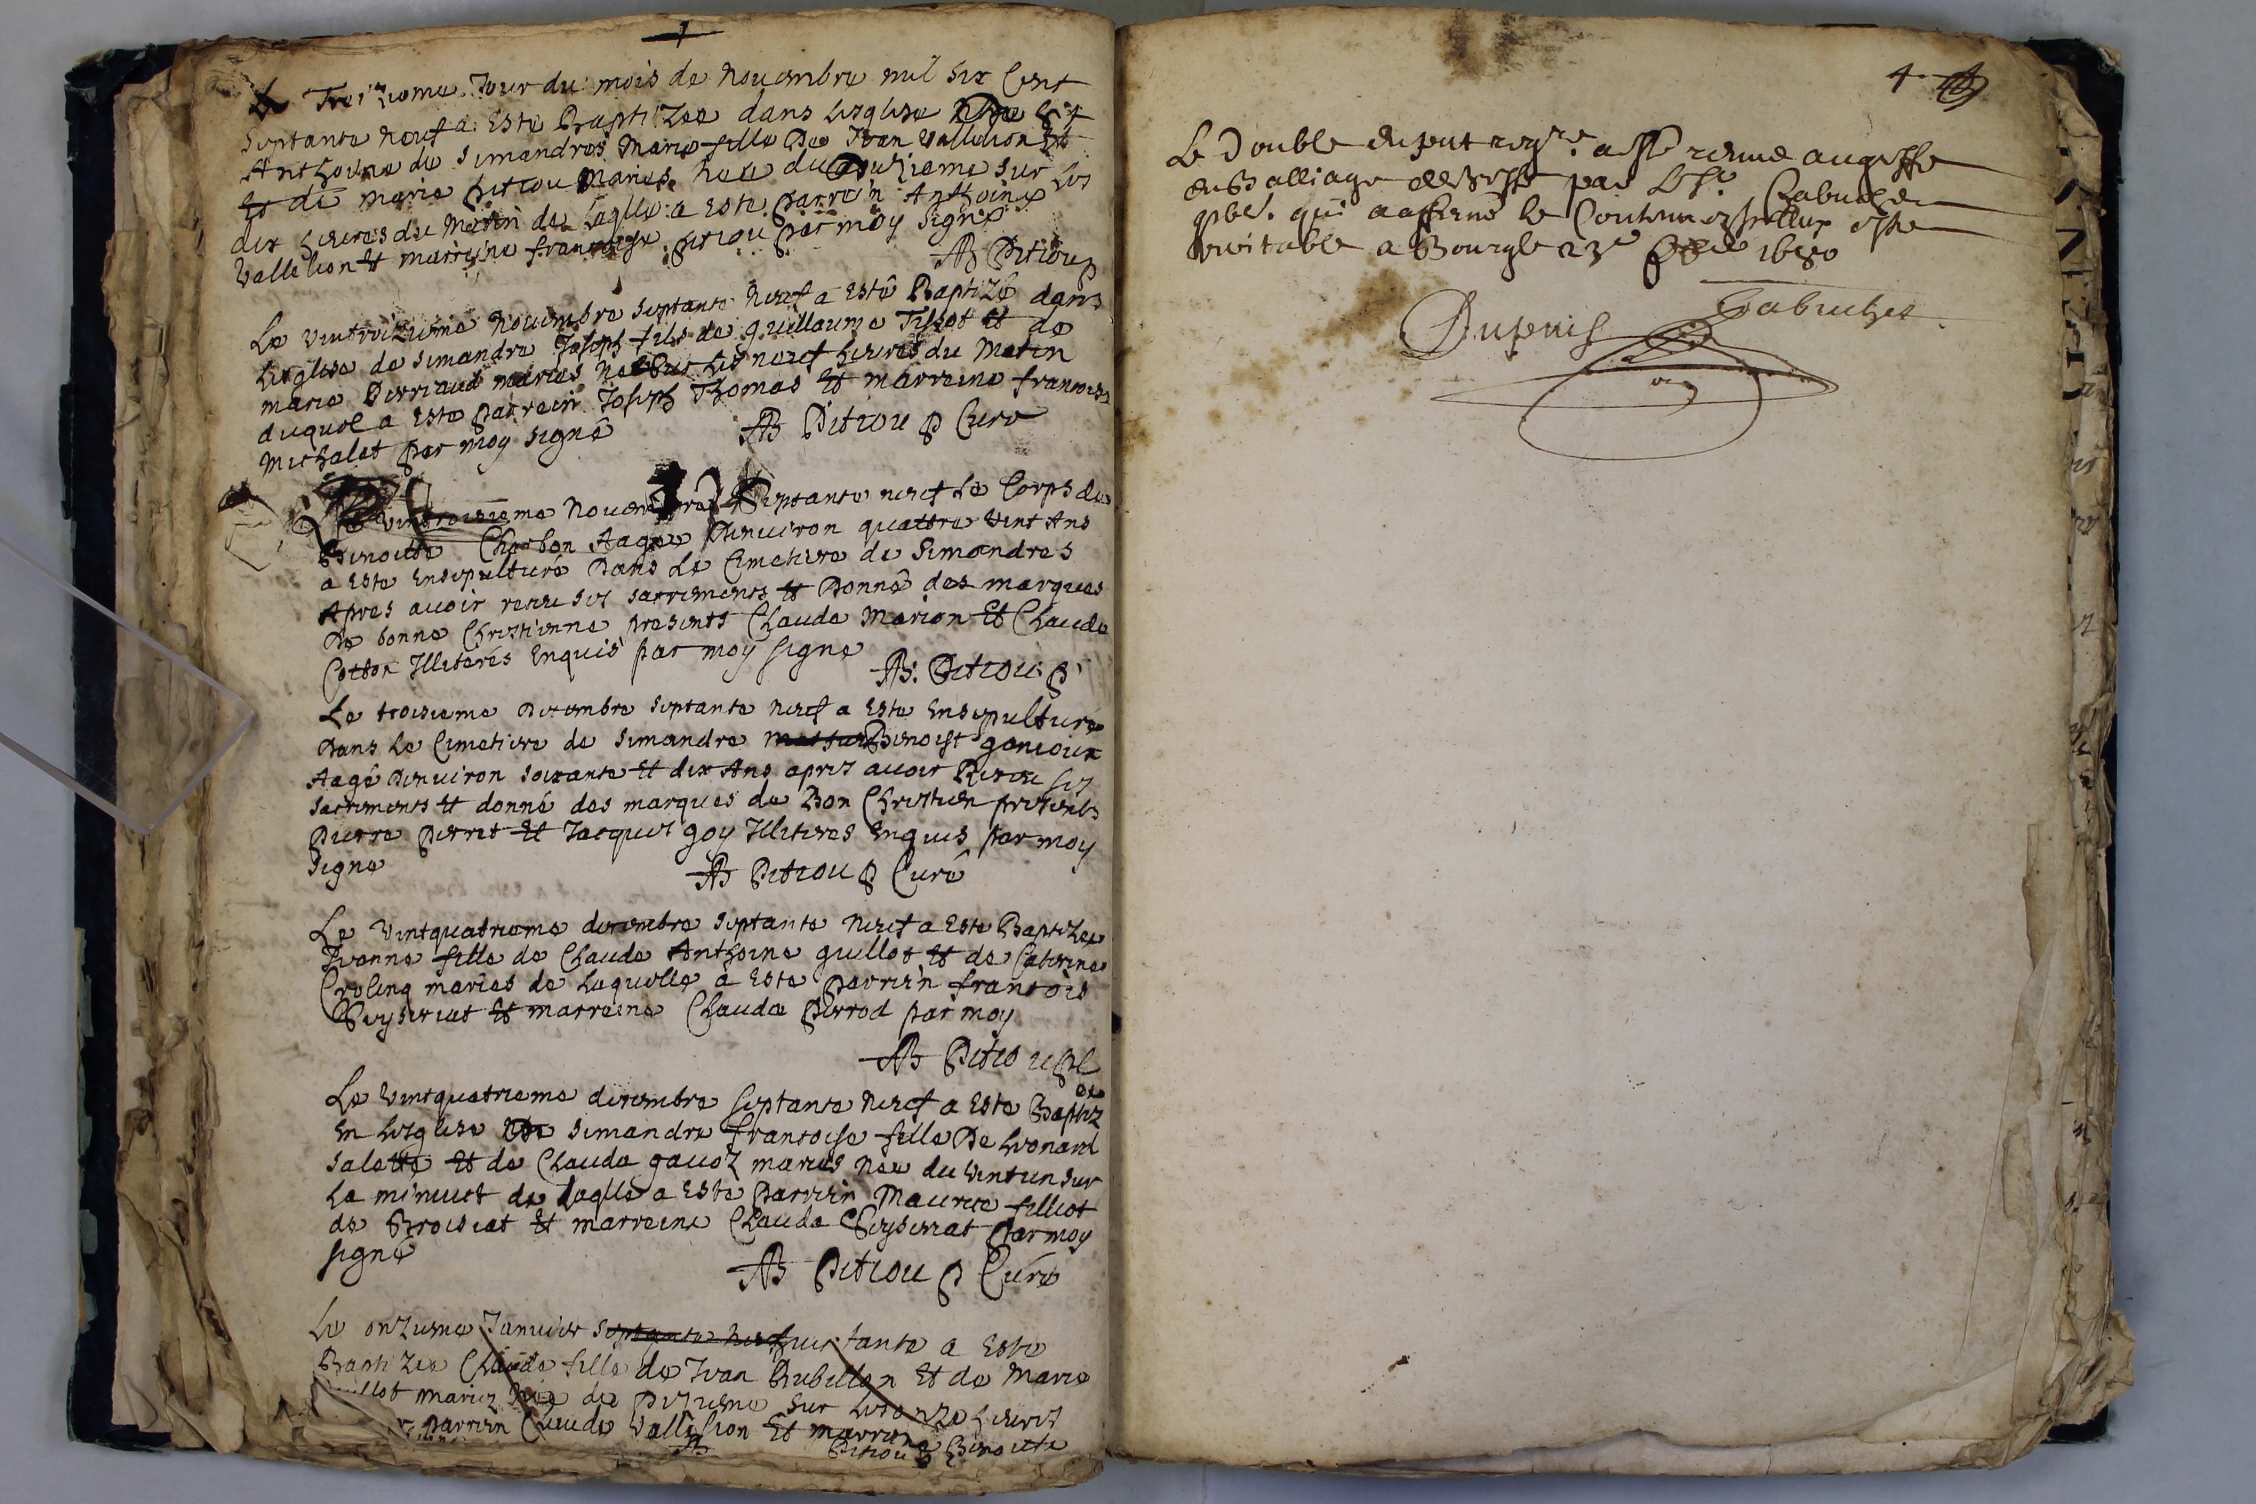 Le Treizieme Jour du mois de Nouembre mil six Cent
septante neuf a Este Baptizée dans Lesglise
Anthoine de Simandres Marie fille De Jean Vallelion Et
Et de marie Pitiou Mariés née du Douzieme sur Les
dix heures du Matin de Laqlle a Este parrein Anthoine
Vallelion Et marreine francoise pitiou par moy signé
AB Pitiou P
Le vintroizieme Nouembre septante neuf a Esté Baptizé dans
Lesglise de simandre Joseph fils de guillaume Tissot Et de
marie Perriaud mariés né sus Les neuf heures du Matin
duquel a Este parrein Joseph Thomas Et marreine francoise
michalet par moy signé
AB Pitiou P Curé
Le vintroisieme Nouembre septante neuf Le Corps de
Benoiste Charbon Aagée d'enuiron quattre vint Ans
a Este Ensepulturé Dans Le Cimetiere de Simandres
Apres auoir receu ses sacrements Et Donné des marques
De bonne Christienne presents Claude Marion Et Claude
Cotton Illiterés Enquis par moy signe
AB. Pitiou. P
Le troisieme Decembre septante neuf a Este Ensepulturé
Dans Le Cimetiere de simandre Benoist
Aagé Denuiron soixante Et dix Ans apres auoir Receu ses
sacrements Et donné des marques de Bon Christien presents
Pierre Perret Et Jacques goy Illiteres Enquis par moy
signe
AB Pitiou P Curé
Le Vintquatrieme decembre septante neuf a Este Baptizée
Iuonne fille de Claude Anthoine guillot Et de Caterine
mariés de Laquelle a Este Parrein francois
Seyseriat Et marreine Claude Perrod par moy
AB Pitiou
Le Vintquatrieme decembre septante neuf a Este Baptizée
En Lesglise de simandre francoise fille De Leonard
Salette Et de Claude gauoz mariés née du vintun sur
La minuict de Laqlle a Este Parrein Maurice filliot
de Broisiat Et marreine Claude Seyseriat Par moy
signé
AB Pitiou P Curé
Le onzieme Januier septante neuf huictante a Este
Baptizée Claude fille de Jean Rubillon Et de Marie
mariez née du Dixieme sur Les onze heures
parrein Claude Vallelion Et marreine
AB Pitiou P Benoiste
4
Le Double du pnt regre. a esté remis au greffe
du Balliage de Bresse par
qui a affirmé le Contenu en
veritable a Bourg le 23e 1680
Dupuis